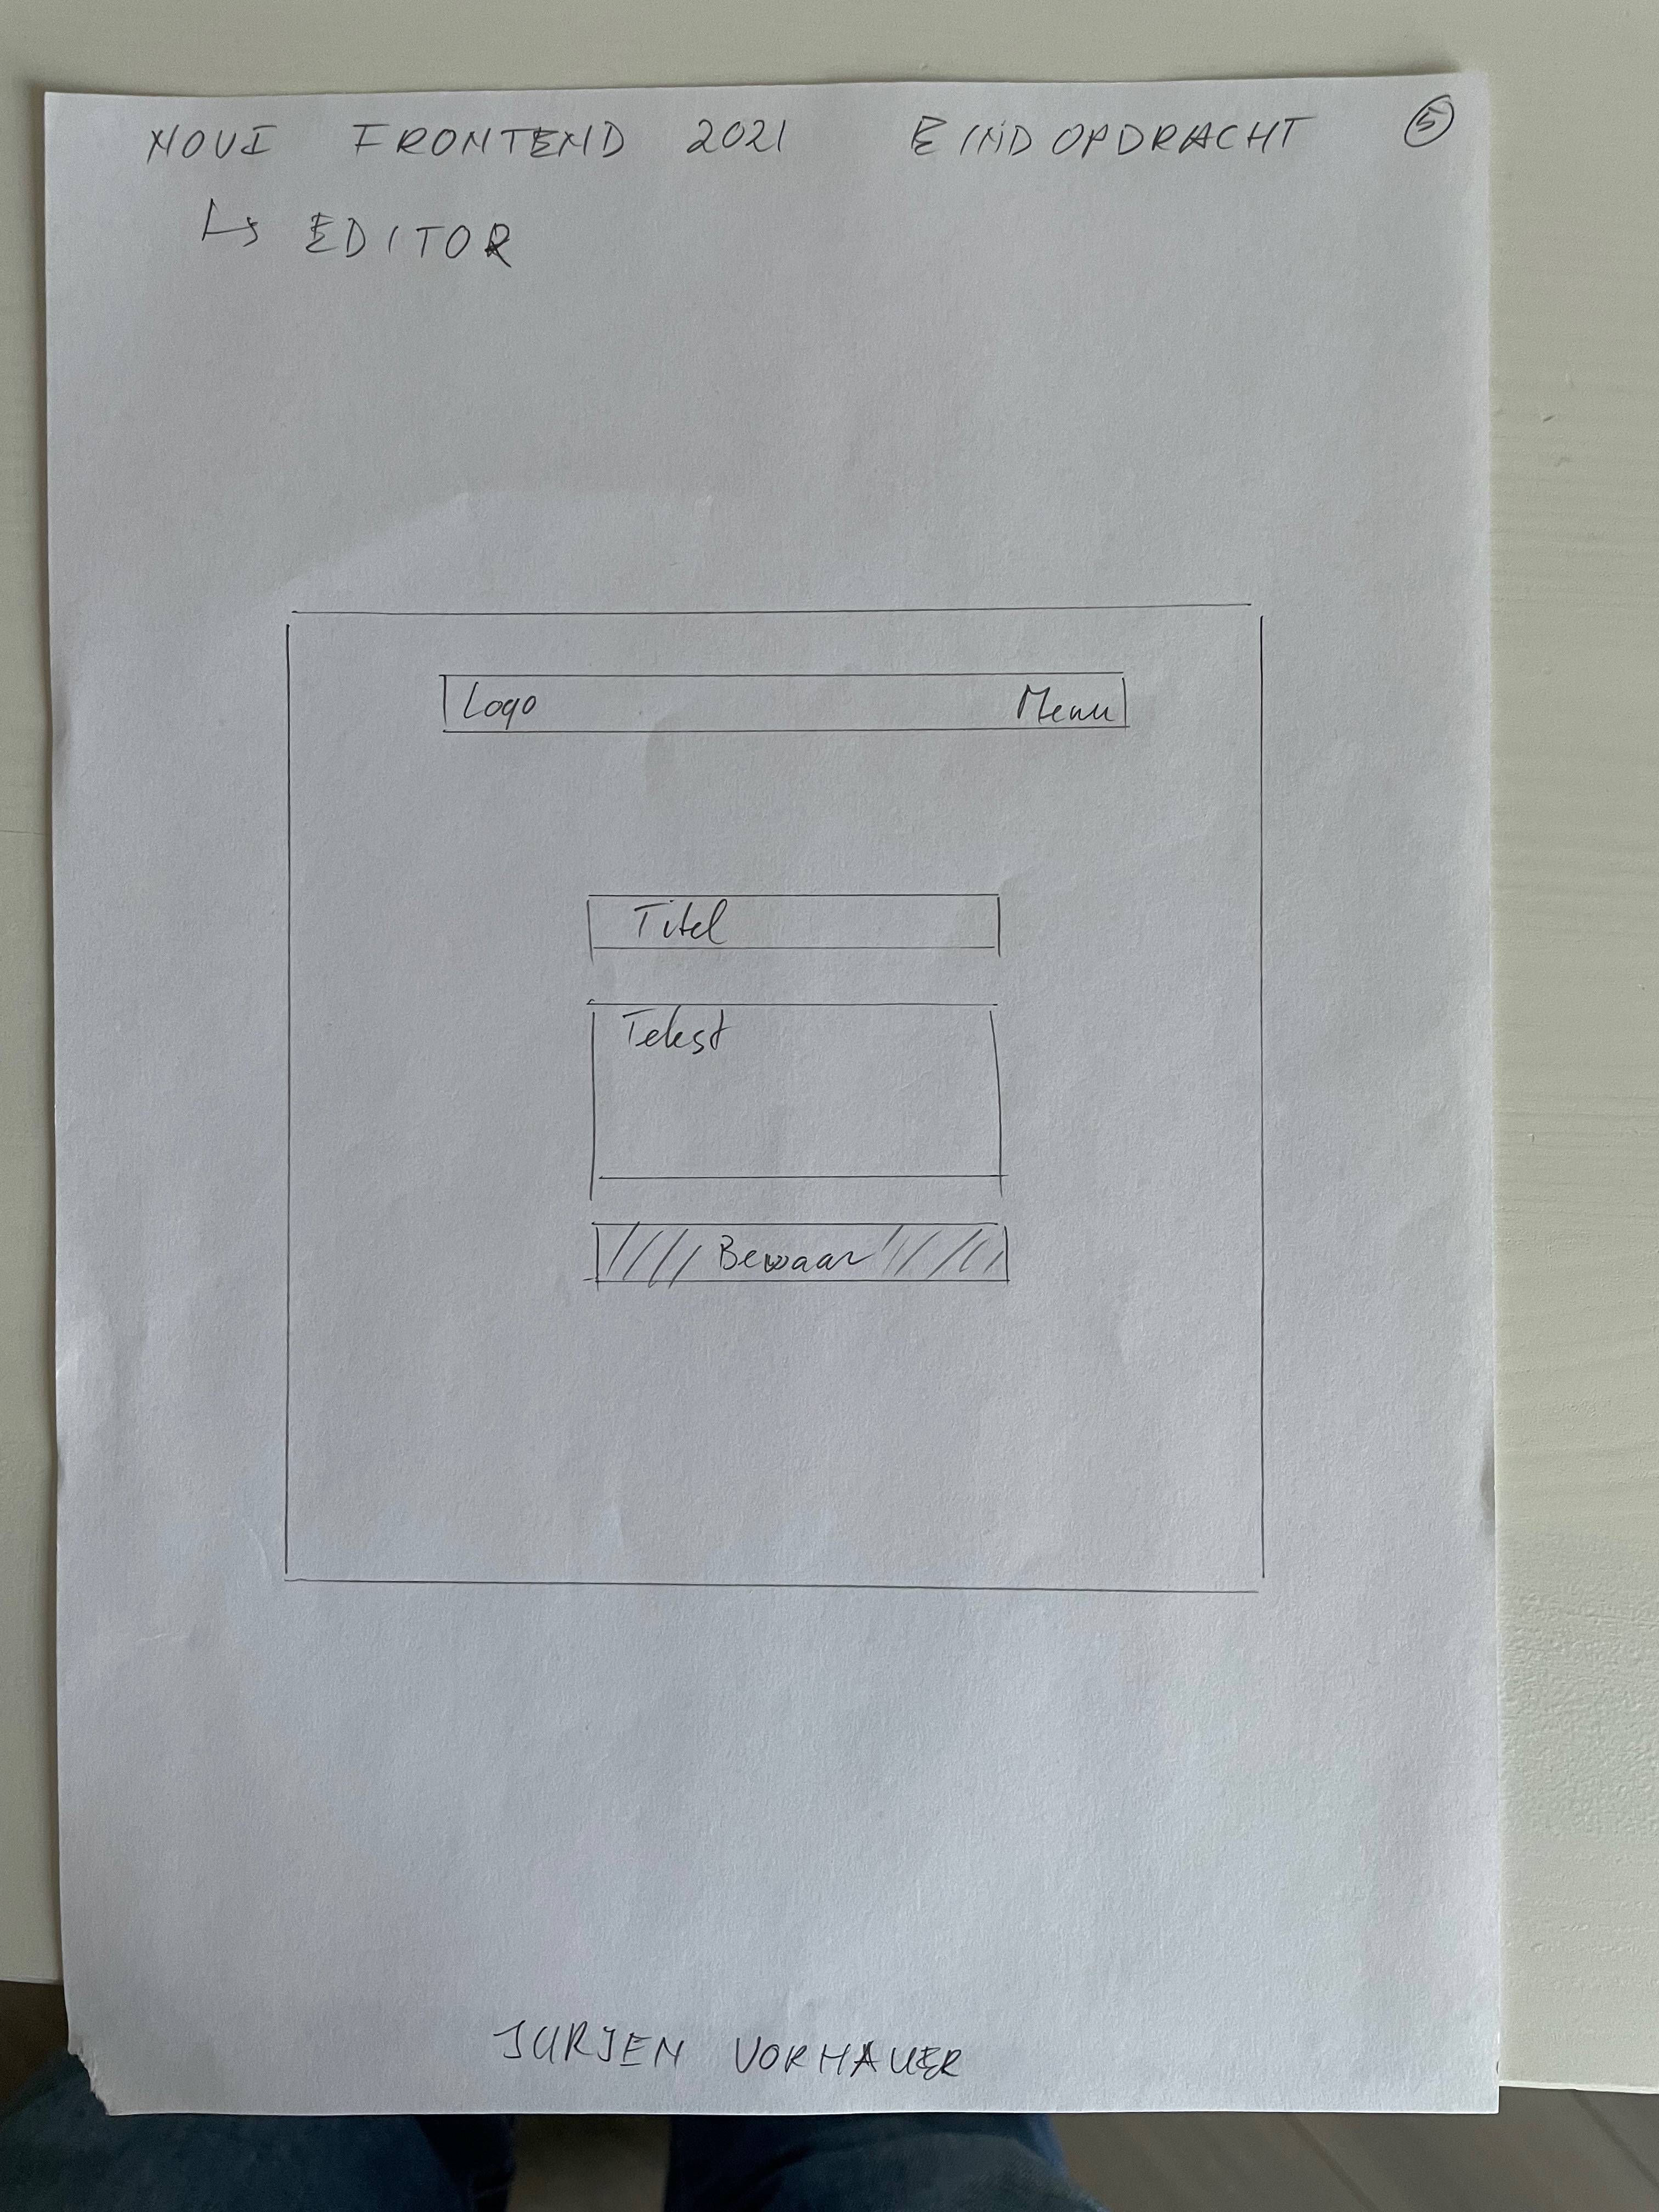 NOVI FRONTEND 2021 EINDOPDRACHT 5
↳ EDITOR
Logo Menu
Titel
Tekst
Bewaar
JURJEN VORHAUER